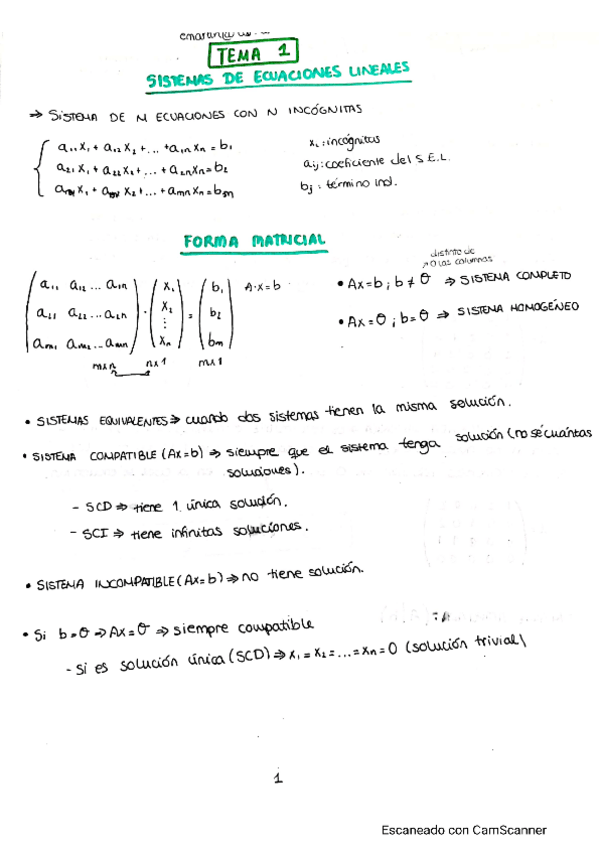 TEMA 1
SISTEMAS DE ECUACIONES LINEALES
→ SISTEMA DE M ECUACIONES CON N INCÓGNITAS
a₁₁x₁ + a₁₂x₂ + ... + a₁ₙxₙ = b₁
a₂₁x₁ + a₂₂x₂ + ... + a₂ₙxₙ = b₂
aₘ₁x₁ + aₘ₂x₂ + ... + aₘₙxₙ = bₘ
xᵢ: incógnitas
aᵢⱼ: coeficiente del S.E.L.
bⱼ: término ind.
FORMA MATRICIAL
a₁₁ a₁₂ ... a₁ₙ x₁ b₁ A·x=b
a₂₁ a₂₂ ... a₂ₙ · x₂ = b₂
⋮
aₘ₁ aₘ₂ ... aₘₙ xₙ bₘ
mxn nx1 mx1
distinto de
→ 0 las columnas
• Ax=b ; b≠0 ⇒ SISTEMA COMPLETO
• Ax=0 ; b=0 ⇒ SISTEMA HOMOGÉNEO
• SISTEMAS EQUIVALENTES ⇒ cuando dos sistemas tienen la misma solución.
• SISTEMA COMPATIBLE (Ax=b) ⇒ siempre que el sistema tenga solución (no sé cuántas
soluciones).
- SCD ⇒ tiene 1 única solución.
- SCI ⇒ tiene infinitas soluciones.
• SISTEMA INCOMPATIBLE (Ax=b) ⇒ no tiene solución.
• Si b=0 ⇒ Ax=0 ⇒ siempre compatible
- Si es solución única (SCD) ⇒ x₁ = x₂ = ... = xₙ = 0 (solución trivial)
1
Escaneado con CamScanner